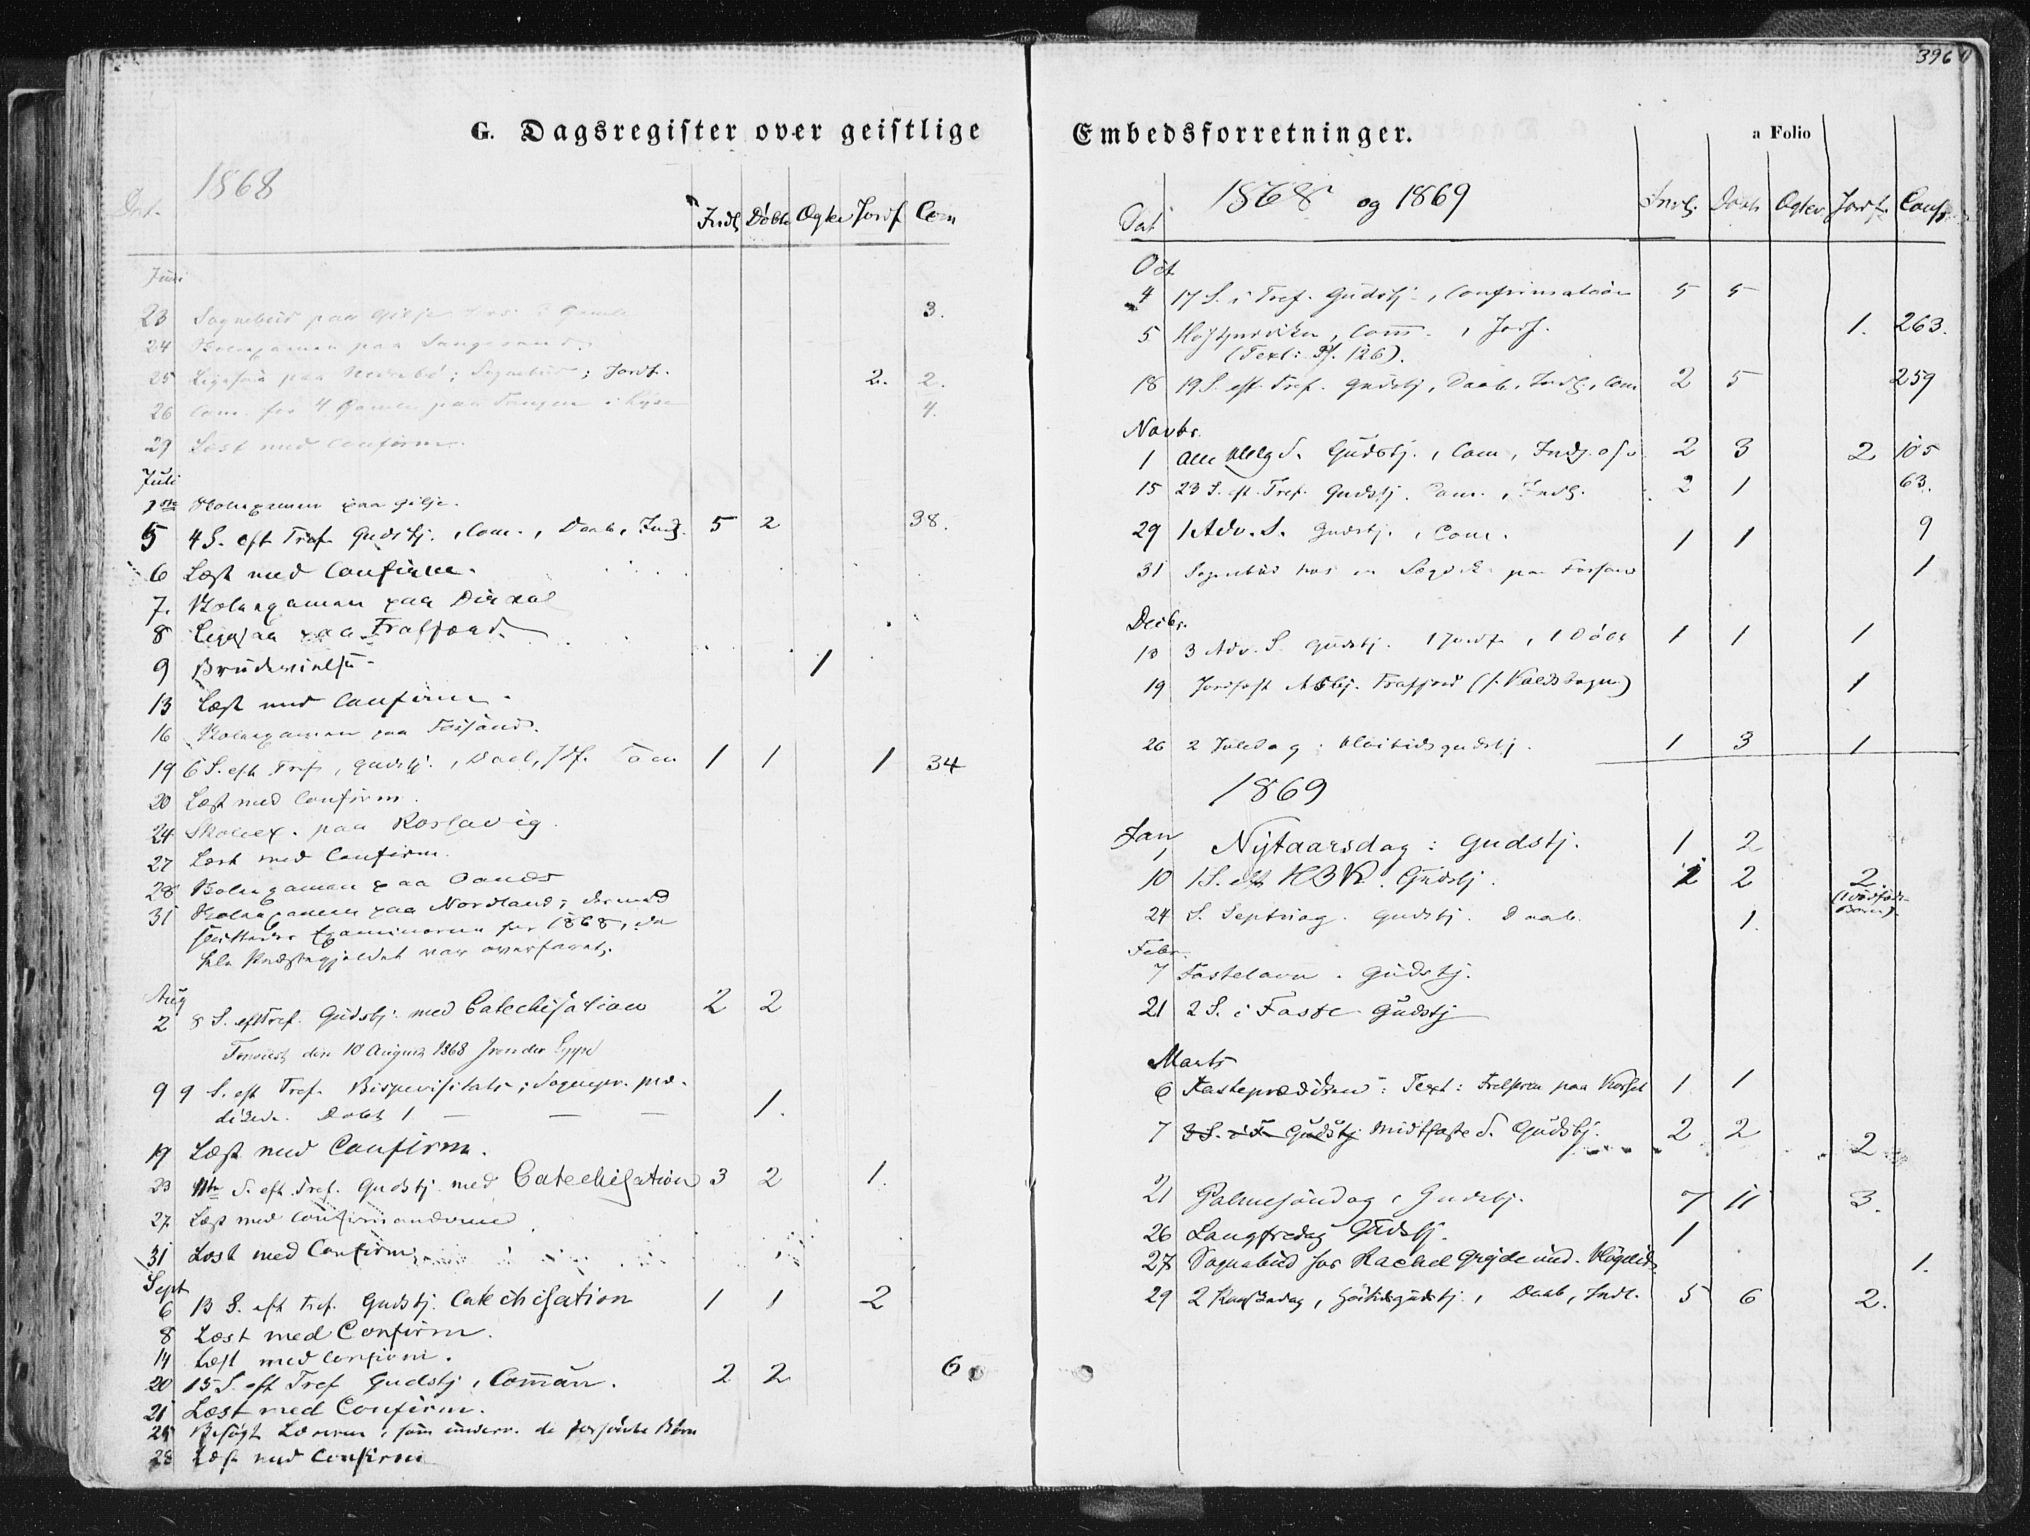 396
G. Dagsregister over geistlige
1868
Dat. Indl Døbte Egtev Jordf Com
Juni
23 Sognebud paa 3.
24 paa
25 Ligefærd paa ; Sognebud; Jordf. 2. 2.
26 Com. for 4 Gamle paa 4.
29 Læst med Confirm.
Juli
Skolexamen paa Gilje.
5 4 S. eft Tref. Gudstj., Com., Daab, Indl. 5 2 38.
6 Læst med Confirm.
7. Skolexamen paa Dirdal
8 paa Frafjord.
9 Brudevielse. 1
13 Læst med Confirm.
16 Skolexamen paa Forsand.
19 6 S. eft Tref, Gudstj., Daab, Jdf. Com 1 1 1 34
20 Læst med Confirm.
24 Skolex. paa Roslavig
27 Læst med Confirm.
28 Skolexamen paa Oanes
31 Skolexamen paa Nordland; dermed
sluttedes Examinerne for 1868, da
hele Præstegjeldet var overfaret.
Aug
2 8 S. eft Tref. Gudstj. med Catechisation 2 2
den 10 August 1868
9 9 S. eft Tref. Bispevisitats; Sognepr. præ-
dikede. Døbt 1 — — — 1.
19 Læst med Confirm.
23 11te S. eft Tref. Gudstj. med Catechisation 3 2 1.
27. Læst med Confirmanderne
31 Læst med Confirm.
Sept
6 13 S. eft Tref. Gudstj. Catechisation 1 1 2
8 Læst med Confirm.
14 Læst med Confirm.
20 15 S. eft Tref Gudstj, Comun. 2 2 6
21 Læst med Confirm.
Besøgt Læreren, som underv. de forsømte Børn
28 Læst med Confirm
Embedsforretninger.
a Folio
1868 og 1869
Dat Indl. Daab Egtev Jordf. Conf.
Oct
4 17 S. i Tref. Gudstj., Confirmation 5 5
5 Høstprædiken, Com., Jordf. 1. 263.
(Text: Ps. 126).
18 19 S. eft Tref. Gudstj, Daab, Indl., Com 2 5 259
Novbr.
1 Alle Helg S. Gudstj., Com, Indl. 2 3 2 105
15 23 S. eft. Tref. Gudstj. Com., Indl. 2 1 63.
29 1 Adv. S. Gudstj., Com. 1 1 9
31 Sognebud hos en paa Forsand 1
Decbr.
13 3 Adv. S. Gudstj. 1 Jordf., 1 Døbt 1 1 1
19 Jordfæst Asbj. Frafjord 1
26 2 Juledag: Høitidsgudstj. 1 3 1
1869
Jan
1 Nytaarsdag: Gudstj. 1 2
10 1 S. eft H3K. Gudstj. 2 2
(1 dødfødt
Barn).
24 S. Septuag. Gudstj. Daab. 1.
Febr.
7 Fastelavn. Gudstj.
21 2 S. i Faste Gudstj
Marts
6 Fasteprædiken: Text: Frelseren paa Korset 1 1
7 3 S. i F. Gudstj. Midtfaste S. Gudstj. 2 2 2
21 Palmesøndag, Gudstj. 7 11 3.
26 Langfredag Gudstj. 1
27 Sognebud hos Rachel 1.
29 2 Paaskedag, Høitidsgudstj., Daab, Indl. 5 6 2.